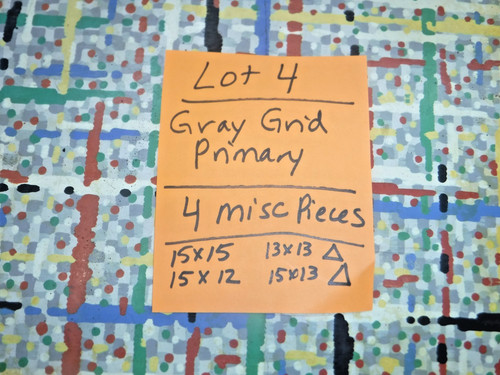 Lot 4
Gray Grid
Primary
4 misc Pieces
15x15 13x13 △
15x12 15x13 △